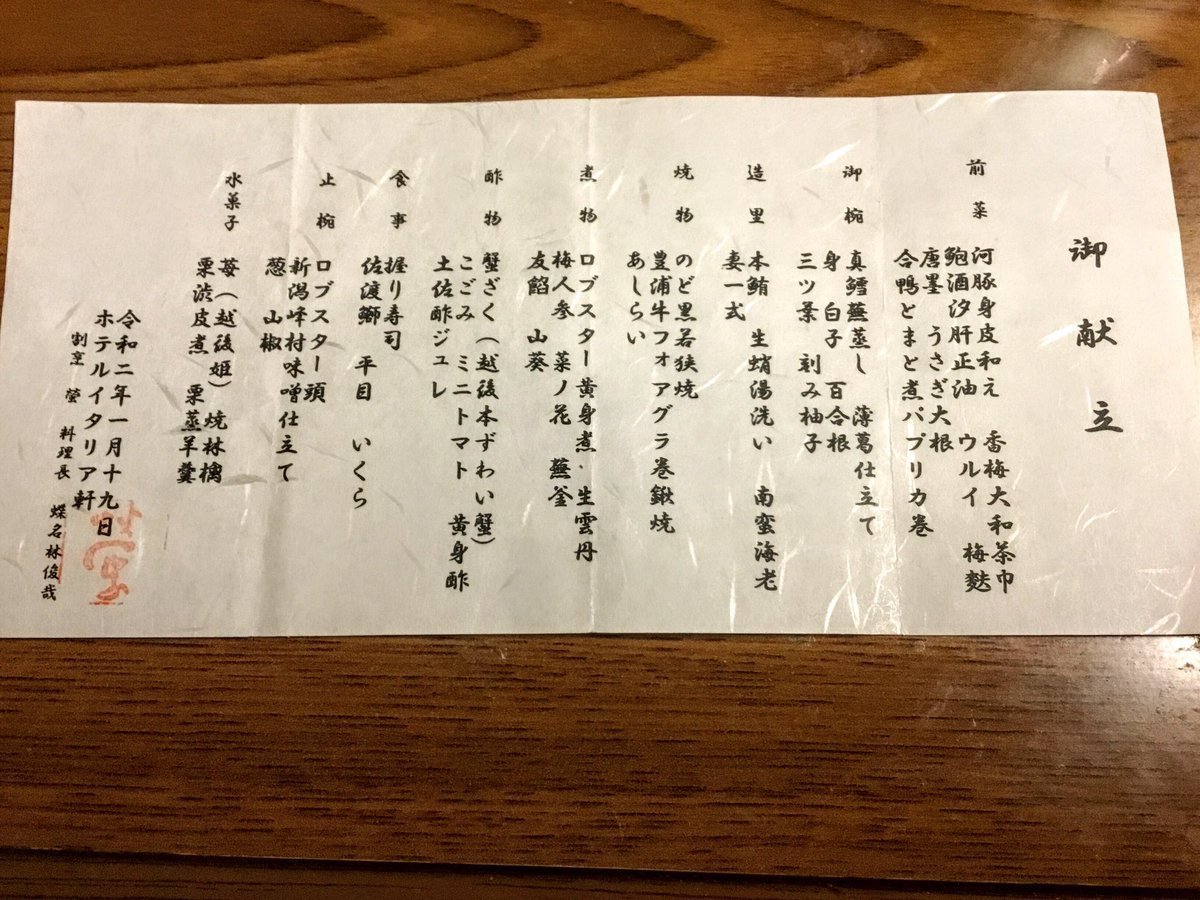 御献立
前菜 河豚身皮和え 香梅大和茶巾
鮑酒汐肝正油 ウルイ 梅麩
唐墨 うさぎ大根
合鴨とまと煮パプリカ巻
御椀 真鱈蕪蒸し 薄葛仕立て
身 白子 百合根
三ツ葉 刻み柚子
造里 本鮪 生蛸湯洗い 南蛮海老
妻一式
焼物 のど黒若狭焼
豊浦牛フォアグラ巻鍬焼
あしらい
煮物 ロブスター黄身煮・生雲丹
梅人参 菜ノ花 蕪釜
友餡 山葵
酢物 蟹ざく(越後本ずわい蟹)
こごみ ミニトマト 黄身酢
土佐酢ジュレ
食事 握り寿司
佐渡鰤 平目 いくら
止椀 ロブスター頭
新潟峰村味噌仕立て
葱 山椒
水菓子 苺(越後姫) 焼林檎
栗渋皮煮 栗蒸羊羹
令和二年一月十九日
ホテルイタリア軒
割烹 螢 料理長 蝶名林俊哉